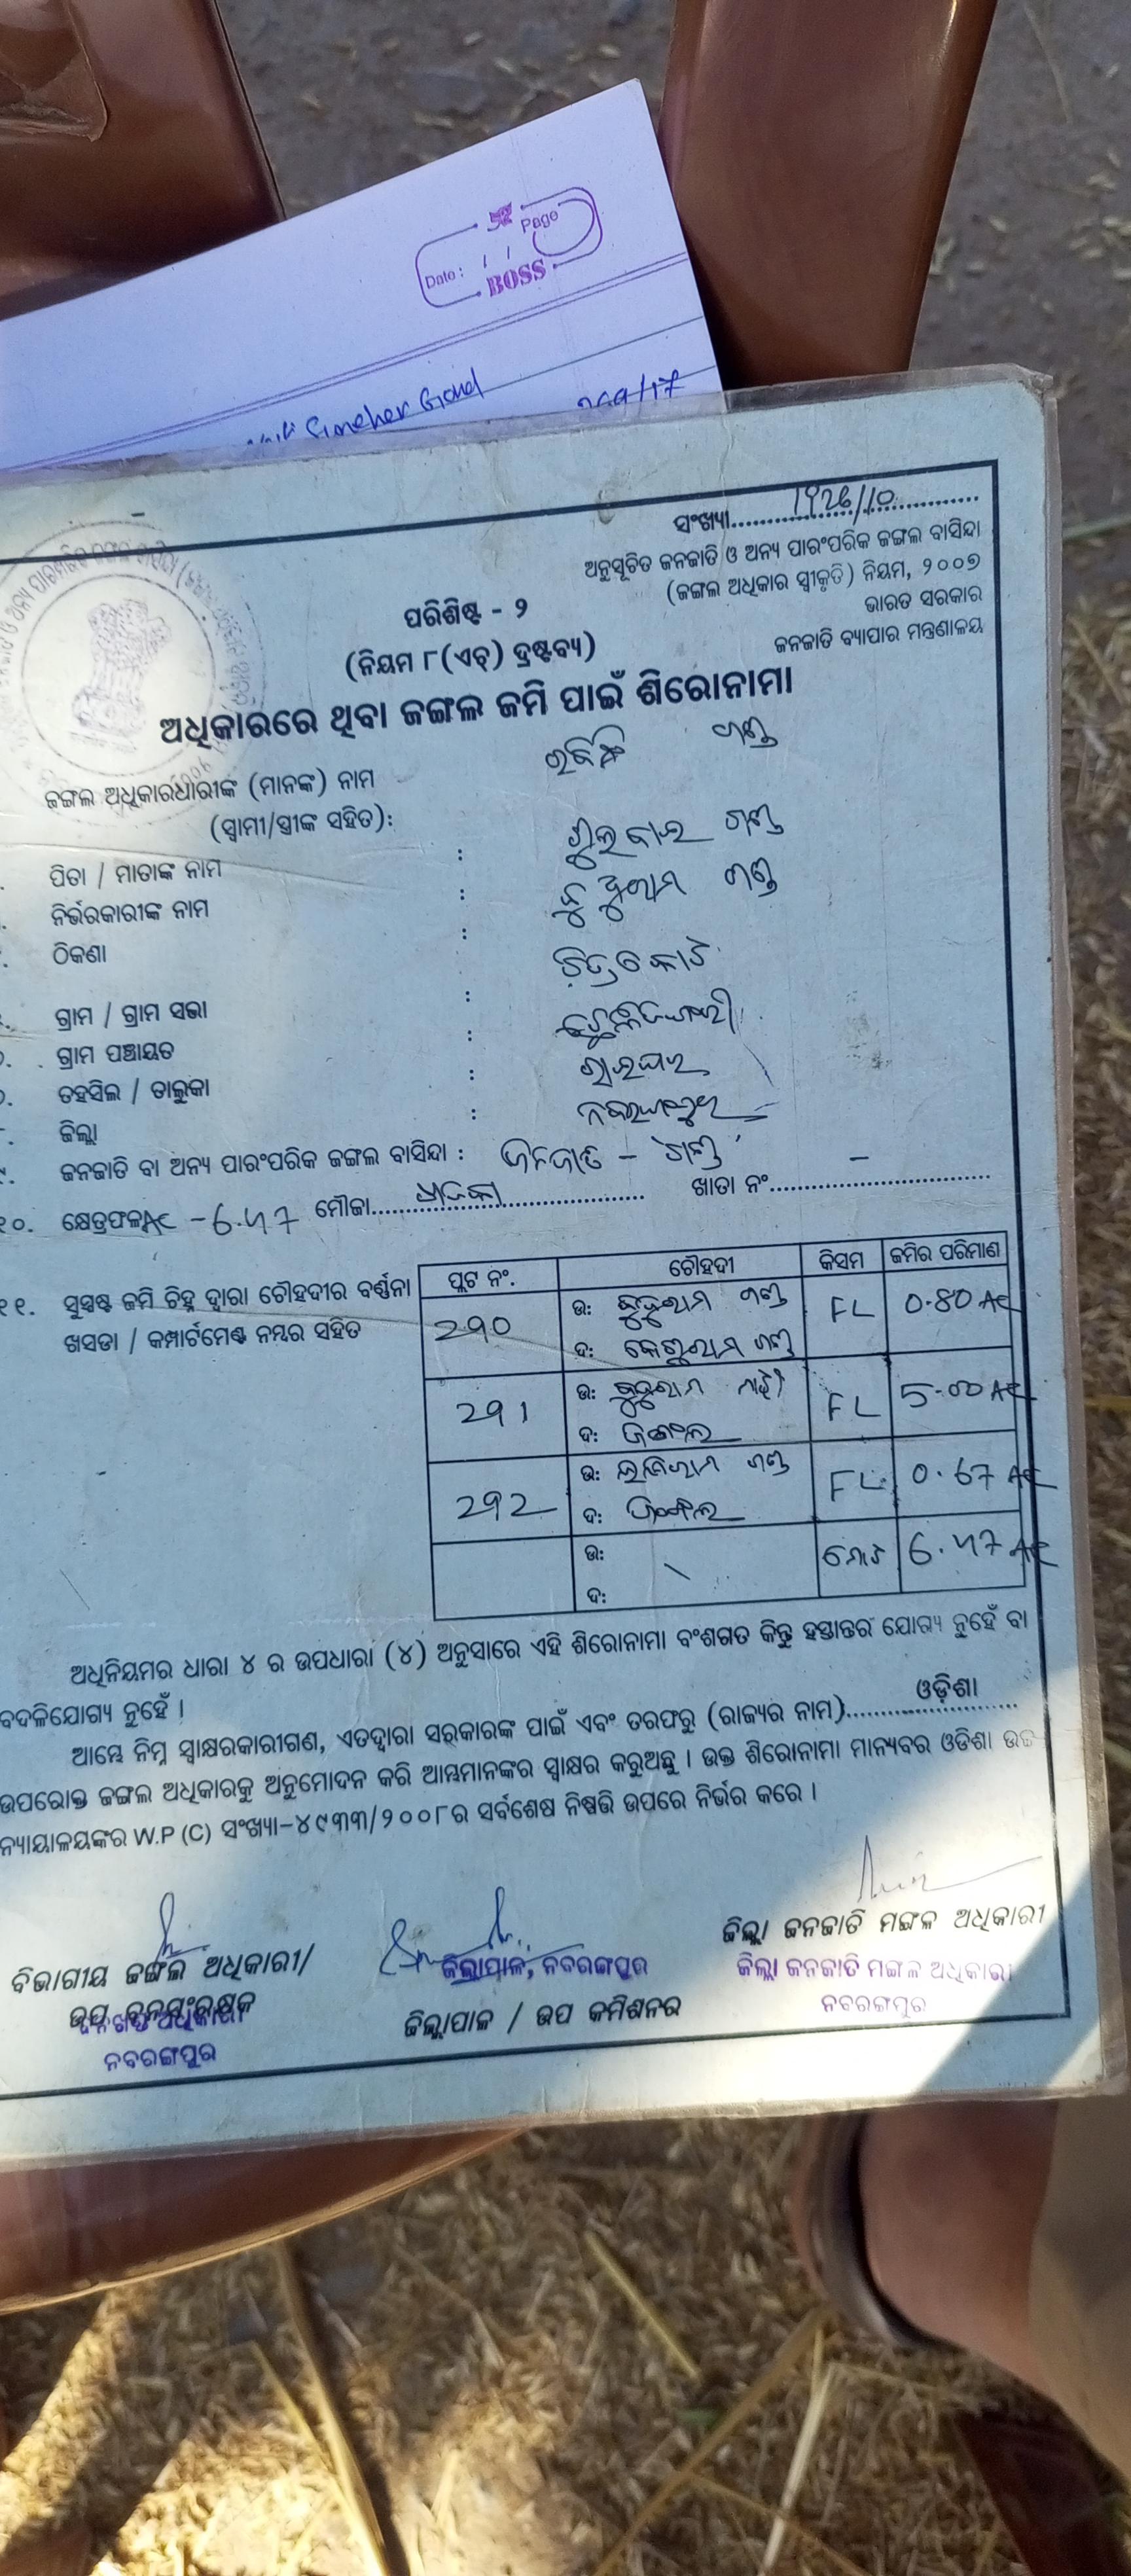 Page
Date : / /
BOSS
Gond
ସଂଖ୍ୟା.................../10..............
ଅନୁସୂଚିତ ଜନଜାତି ଓ ଅନ୍ୟ ପାରଂପରିକ ଜଙ୍ଗଲ ବାସିନ୍ଦା
(ଜଙ୍ଗଲ ଅଧିକାର ସ୍ୱୀକୃତି) ନିୟମ, ୨୦୦୭
ଭାରତ ସରକାର
ଜନଜାତି ବ୍ୟାପାର ମନ୍ତ୍ରଣାଳୟ
ପରିଶିଷ୍ଟ - ୨
(ନିୟମ ୮(ଏଚ୍) ଦ୍ରଷ୍ଟବ୍ୟ)
ଅଧିକାରରେ ଥିବା ଜଙ୍ଗଲ ଜମି ପାଇଁ ଶିରୋନାମା
ଜଙ୍ଗଲ ଅଧିକାରଧାରୀଙ୍କ (ମାନଙ୍କ) ନାମ ଗଣ୍ଡ
(ସ୍ୱାମୀ/ସ୍ତ୍ରୀଙ୍କ ସହିତ):
ପିତା / ମାତାଙ୍କ ନାମ : ଗଣ୍ଡ
ନିର୍ଭରକାରୀଙ୍କ ନାମ : ଗଣ୍ଡ
ଠିକଣା :
ଗ୍ରାମ / ଗ୍ରାମ ସଭା : ଚିତ୍ରକୋଟ
ଗ୍ରାମ ପଞ୍ଚାୟତ :
ତହସିଲ / ତାଲୁକା : ରାଇଘର
ଜିଲ୍ଲା : ନବରଙ୍ଗପୁର
ଜନଜାତି ବା ଅନ୍ୟ ପାରଂପରିକ ଜଙ୍ଗଲ ବାସିନ୍ଦା : ଜନଜାତି - ଗଣ୍ଡ
୧୦. କ୍ଷେତ୍ରଫଳ AC - 6.47 ମୌଜା.................................. ଖାତା ନଂ.............-.............
୧୧. ସୁସ୍ପଷ୍ଟ ଜମି ଚିହ୍ନ ଦ୍ୱାରା ଚୌହଦୀର ବର୍ଣ୍ଣନା
ଖସଡା / କମ୍ପାର୍ଟମେଣ୍ଟ ନମ୍ବର ସହିତ
ପ୍ଲଟ ନଂ. ଚୌହଦୀ କିସମ ଜମିର ପରିମାଣ
290 ଉ: ଗଣ୍ଡ FL 0.80 AC
ଦ: ଗଣ୍ଡ
291 ଉ: FL 5.00 AC
ଦ: ଜଙ୍ଗଲ
292 ଉ: ଗଣ୍ଡ FL 0.67 AC
ଦ: ଜଙ୍ଗଲ
ଉ: ମୋଟ 6.47 AC
ଦ:
ଅଧିନିୟମର ଧାରା ୪ ର ଉପଧାରା (୪) ଅନୁସାରେ ଏହି ଶିରୋନାମା ବଂଶଗତ କିନ୍ତୁ ହସ୍ତାନ୍ତର ଯୋଗ୍ୟ ନୁହେଁ ବା
ବଦଳିଯୋଗ୍ୟ ନୁହେଁ ।
ଆମ୍ଭେ ନିମ୍ନ ସ୍ୱାକ୍ଷରକାରୀଗଣ, ଏତଦ୍ୱାରା ସରକାରଙ୍କ ପାଇଁ ଏବଂ ତରଫରୁ (ରାଜ୍ୟର ନାମ)..........ଓଡ଼ିଶା..........
ଉପରୋକ୍ତ ଜଙ୍ଗଲ ଅଧିକାରକୁ ଅନୁମୋଦନ କରି ଆମ୍ଭମାନଙ୍କର ସ୍ୱାକ୍ଷର କରୁଅଛୁ । ଉକ୍ତ ଶିରୋନାମା ମାନ୍ୟବର ଓଡିଶା ଉଚ୍ଚ
ନ୍ୟାୟାଳୟଙ୍କର W.P (C) ସଂଖ୍ୟା-୪୯୩୩/୨୦୦୮ର ସର୍ବଶେଷ ନିଷ୍ପତ୍ତି ଉପରେ ନିର୍ଭର କରେ ।
ବିଭାଗୀୟ ଜଙ୍ଗଲ ଅଧିକାରୀ/
ଉପ ବନସଂରକ୍ଷକ
ବନଖଣ୍ଡ ଅଧିକାରୀ
ନବରଙ୍ଗପୁର
ଜିଲ୍ଲାପାଳ, ନବରଙ୍ଗପୁର
ଜିଲ୍ଲାପାଳ / ଉପ କମିଶନର
ଜିଲ୍ଲା ଜନଜାତି ମଙ୍ଗଳ ଅଧିକାରୀ
ଜିଲ୍ଲା ଜନଜାତି ମଙ୍ଗଳ ଅଧିକାରୀ
ନବରଙ୍ଗପୁର